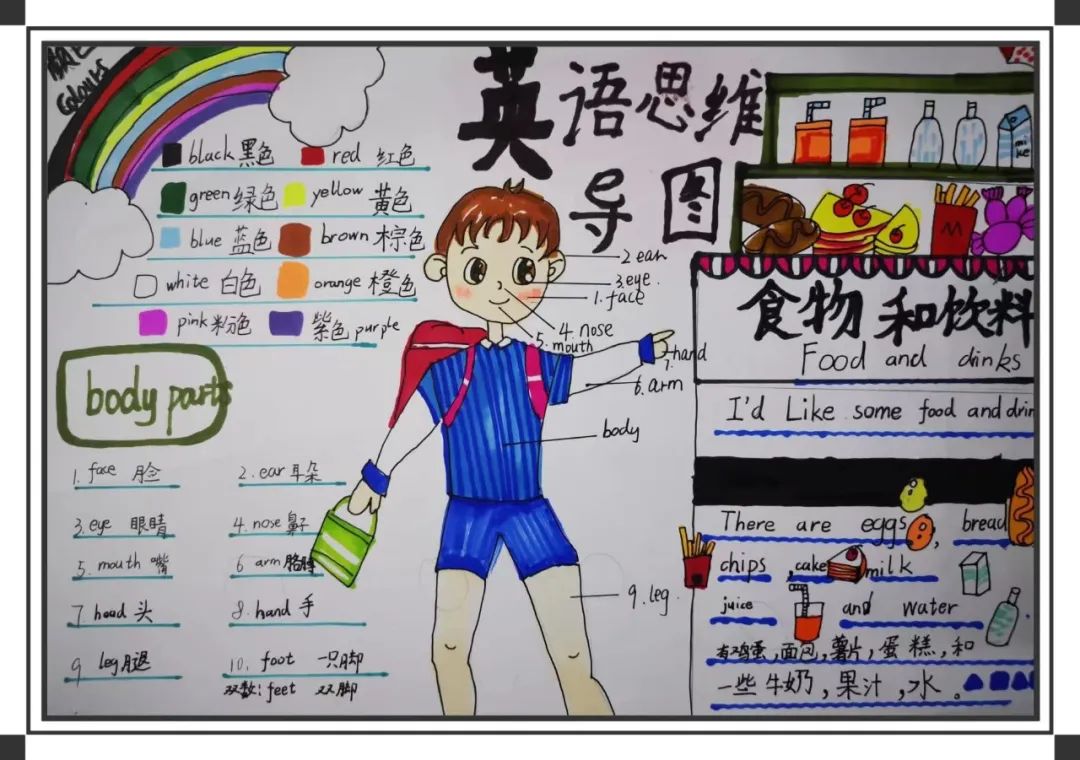 颜色
Colours
英语思维
导图
black 黑色 red 红色
green 绿色 yellow 黄色
blue 蓝色 brown 棕色
white 白色 orange 橙色
pink 粉色 紫色 purple
body parts
1. face 脸 2. ear 耳朵
3. eye 眼睛 4. nose 鼻子
5. mouth 嘴 6 arm 胳膊
7 head 头 8. hand 手
9 leg 腿 10. foot 一只脚
双数: feet 双脚
2 ear
3. eye.
1. face
4. nose
5. mouth
7. hand
6. arm
body
9. leg.
M
食物和饮料
Food and drinks
I'd Like some food and drin
There are eggs, bread
chips, cake milk
juice and water
有鸡蛋,面包,薯片,蛋糕,和
一些牛奶,果汁,水。